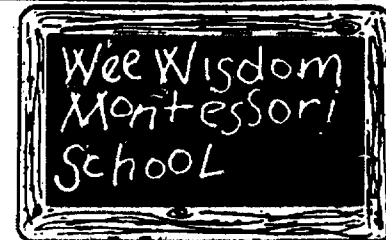 Wee Wisdom
Montessori
SchooL